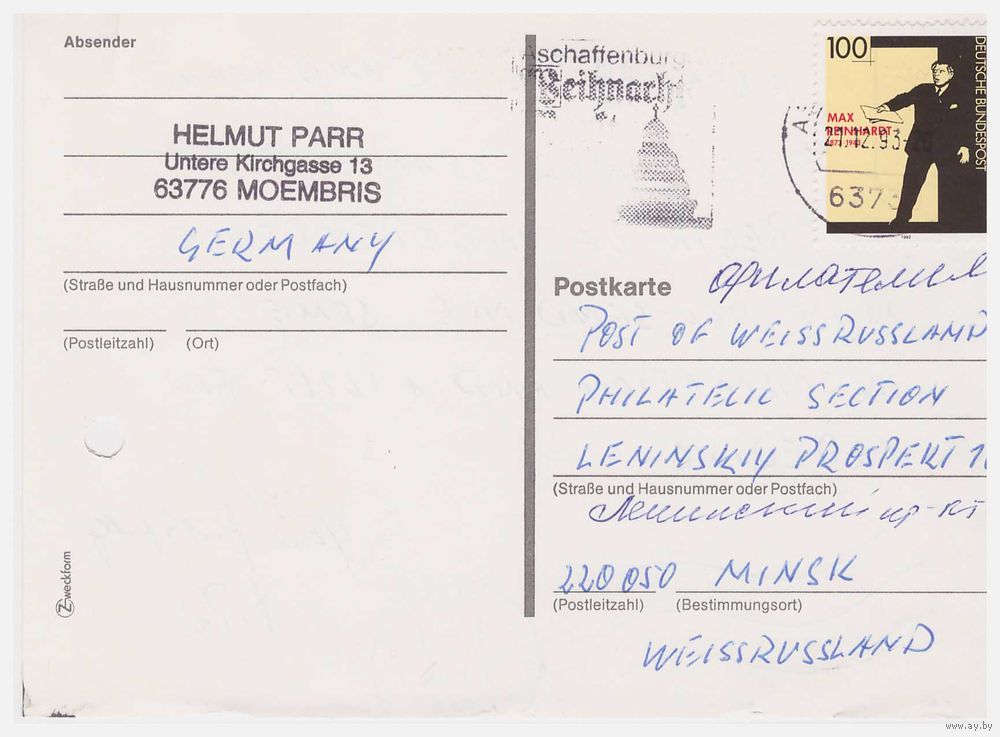 Absender
HELMUT PARR
Untere Kirchgasse 13
63776 MOEMBRIS
GERMANY
(Straße und Hausnummer oder Postfach)
(Postleitzahl) (Ort)
Zweckform
Aschaffenburger
Weihnacht
100
DEUTSCHE BUNDESPOST
MAX
REINHARDT
1873 1943
21.12.93-20
6373
1993
Postkarte
филателия
POST OF WEISSRUSSLAND
PHILATELIC SECTION
LENINSKIY PROSPEKT 10
(Straße und Hausnummer oder Postfach)
Ленинский пр-кт
220050 MINSK
(Postleitzahl) (Bestimmungsort)
WEISSRUSSLAND
www.ay.by